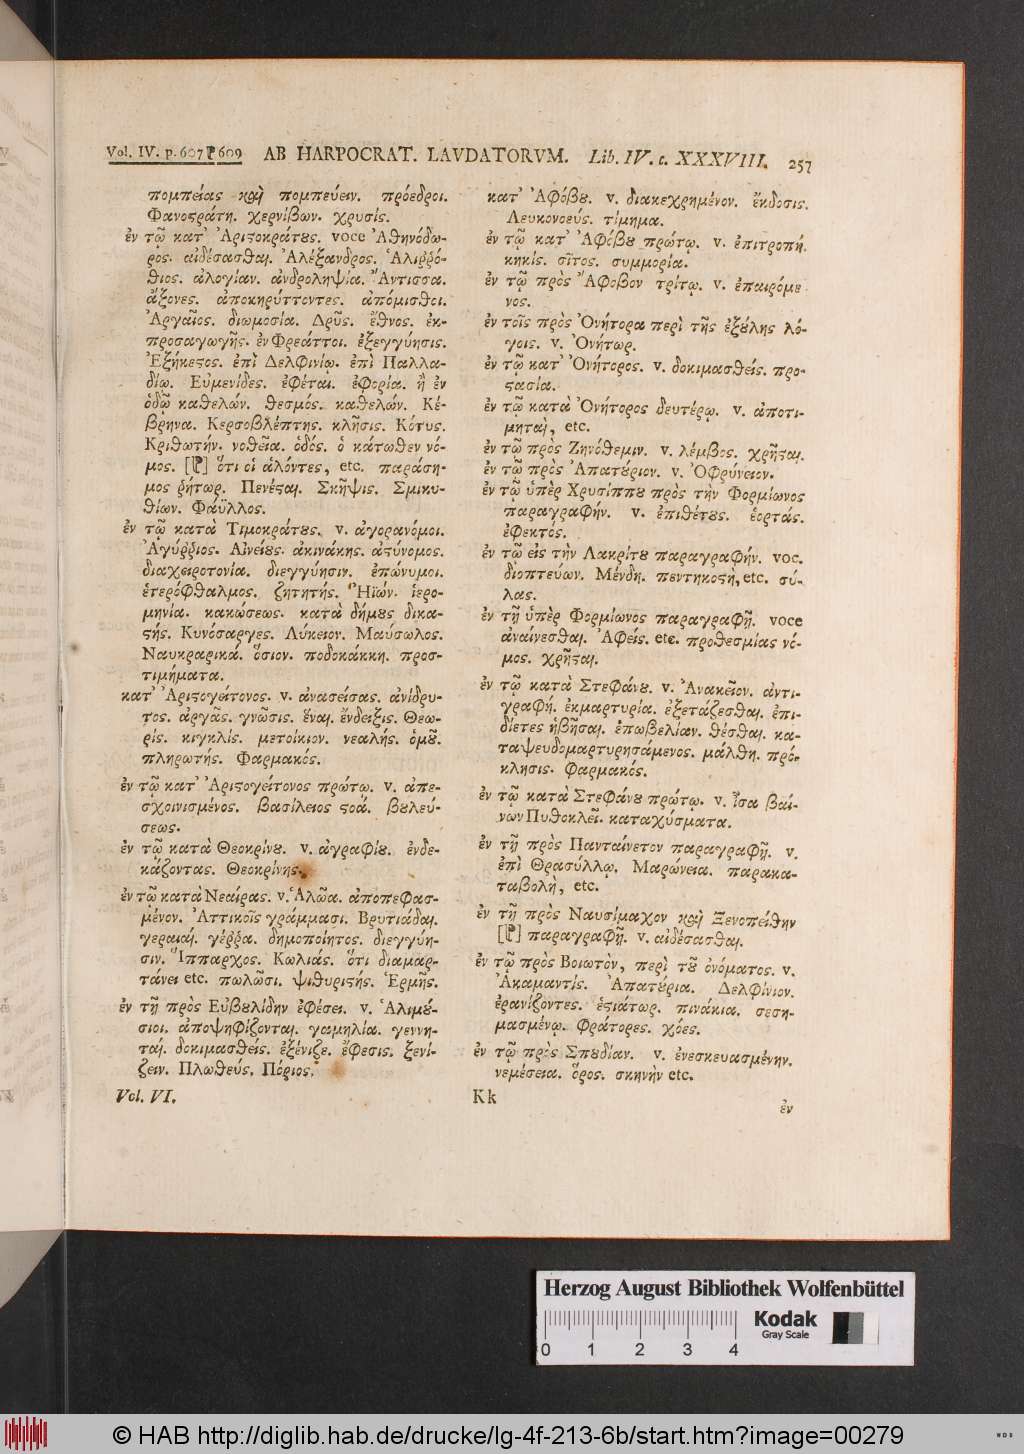 Vol. IV. p. 607 ⁋ 609 AB HARPOCRAT. LAVDATORVM. Lib. IV. c. XXXVIII. 257
πομπείας καὶ πομπεύειν. πρόεδροι.
Φανοστράτη. χερνίβων. χρυσίς.
ἐν τῷ κατ' Ἀριστοκράτους. voce Ἀθηνόδω-
ρος. αἰδέσασθαι. Ἀλέξανδρος. Ἁλιῤῥό-
θιος. ἀλογίαν. ἀνδροληψία. Ἄντισσα.
ἄξονες. ἀποκηρύττοντες. ἀπόμισθοι.
Ἀργαῖος. διωμοσία. Δρῦς. ἔθνος. ἐκ-
προσαγωγῆς. ἐν Φρεάττοι. ἐξεγγύησις.
Ἐξήκεστος. ἐπὶ Δελφινίῳ. ἐπὶ Παλλα-
δίῳ. Εὐμενίδες. ἐφέται. ἐφορία. ἢ ἐν
ὁδῷ καθελών. θεσμός. καθελών. Κέ-
βρηνα. Κερσοβλέπτης. κλῆσις. Κότυς.
Κριθωτήν. νοθεῖα. ὁδός. ὁ κάτωθεν νό-
μος. [⁋] ὅτι οἱ ἁλόντες, etc. παράση-
μος ῥήτωρ. Πενέσται. Σκῆψις. Σμικυ-
θίων. Φάϋλλος.
ἐν τῷ κατὰ Τιμοκράτους. v. ἀγορανόμοι.
Ἀγύῤῥιος. Αἰνείους. ἀκινάκης. ἀστύνομος.
διαχειροτονία. διεγγύησιν. ἐπώνυμοι.
ἑτερόφθαλμος. ζητητής. Ἠϊών. ἱερο-
μηνία. κακώσεως. κατὰ δήμους δικα-
στής. Κυνόσαργες. Λύκειον. Μαύσωλος.
Ναυκραρικά. ὅσιον. ποδοκάκκη. προσ-
τιμήματα.
κατ' Ἀριστογείτονος. v. ἀνασείσας. ἀνίδρυ-
τος. ἀργᾶς. γνῶσις. ἔναι. ἔνδειξις. Θεω-
ρίς. κιγκλίς. μετοίκιον. νεαλής. ὁμοῦ.
πληρωτής. Φαρμακός.
ἐν τῷ κατ' Ἀριστογείτονος πρώτῳ. v. ἀπε-
σχοινισμένος. βασίλειος στοά. βουλεύ-
σεως.
ἐν τῷ κατὰ Θεοκρίνου. v. ἀγραφίου. ἐνδε-
κάζοντας. Θεοκρίνης.
ἐν τῷ κατὰ Νεαίρας. v. Ἁλῶα. ἀποπεφασ-
μένον. Ἀττικοῖς γράμμασι. Βρυτιάδαι.
γεραιαί. γέῤῥα. δημοποίητος. διεγγύη-
σιν. Ἵππαρχος. Κωλιάς. ὅτι διαμαρ-
τάνει etc. πωλῶσι. ψιθυριστής. Ἑρμῆς.
ἐν τῇ πρὸς Εὐβουλίδην ἐφέσει. v. Ἁλιμού-
σιοι. ἀποψηφίζονται. γαμηλία. γεννη-
ταί. δοκιμασθείς. ἐξένιζε. ἔφεσις. ξενί-
ζειν. Πλωθεύς. Πόριος.
Vol. VI.
κατ' Ἀφόβου. v. διακεχρημένον. ἔκδοσις.
Λευκονοεύς. τίμημα.
ἐν τῷ κατ' Ἀφόβου πρώτῳ. v. ἐπιτροπή.
κηκίς. σῖτος. συμμορία.
ἐν τῷ πρὸς Ἄφοβον τρίτῳ. v. ἐπαιρόμε
νος.
ἐν τοῖς πρὸς Ὀνήτορα περὶ τῆς ἐξούλης λό-
γοις. v. Ὀνήτωρ.
ἐν τῷ κατ' Ὀνήτορος. v. δοκιμασθείς. προ-
στασία.
ἐν τῷ κατὰ Ὀνήτορος δευτέρῳ. v. ἀποτι-
μηταὶ, etc.
ἐν τῷ πρὸς Ζηνόθεμιν. v. λέμβος. χρῆσται.
ἐν τῷ πρὸς Ἀπατούριον. v. Ὀφρύνειον.
ἐν τῷ ὑπὲρ Χρυσίππου πρὸς τὴν Φορμίωνος
παραγραφήν. v. ἐπιθέτους. ἑορτάς.
ἐφεκτός.
ἐν τῷ εἰς τὴν Λακρίτου παραγραφήν. voc.
διοπτεύων. Μένδη. πεντηκοστὴ, etc. σύ-
λας.
ἐν τῇ ὑπὲρ Φορμίωνος παραγραφῇ. voce
ἀναίνεσθαι. Ἀφείς. etc. προθεσμίας νό-
μος. χρῆσται.
ἐν τῷ κατὰ Στεφάνου. v. Ἀνακεῖον. ἀντι-
γραφή. ἐκμαρτυρία. ἐξετάζεσθαι. ἐπι-
δίετες ἡβῆσαι. ἐπωβελίαν. θέσθαι. κα-
ταψευδομαρτυρησάμενος. μάλθη. πρό-
κλησις. φαρμακός.
ἐν τῷ κατὰ Στεφάνου πρώτῳ. v. Ἴσα βαί-
νων Πυθοκλεῖ. καταχύσματα.
ἐν τῇ πρὸς Πανταίνετον παραγραφῇ. v.
ἐπὶ Θρασύλλῳ. Μαρώνεια. παρακα-
ταβολὴ, etc.
ἐν τῇ πρὸς Ναυσίμαχον καὶ Ξενοπείθην
[⁋] παραγραφῇ. v. αἰδέσασθαι.
ἐν τῷ πρὸς Βοιωτὸν, περὶ τοῦ ὀνόματος. v.
Ἀκαμαντίς. Ἀπατούρια. Δελφίνιον.
ἐρανίζοντες. ἑστιάτωρ. πινάκια. σεση-
μασμένῳ. Φράτορες. χόες.
ἐν τῷ πρὸς Σπουδίαν. v. ἐνεσκευασμένην.
νεμέσεια. ὅρος. σκηνὴν etc.
Kk
ἐν
Herzog August Bibliothek Wolfenbüttel
Kodak
Gray Scale
0 1 2 3 4
© HAB http://diglib.hab.de/drucke/lg-4f-213-6b/start.htm?image=00279